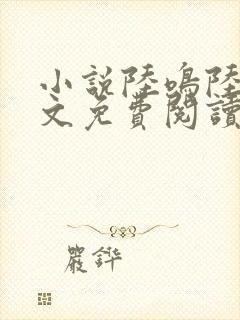 小說陸鳴陸
文免費閱讀
嚴鏵